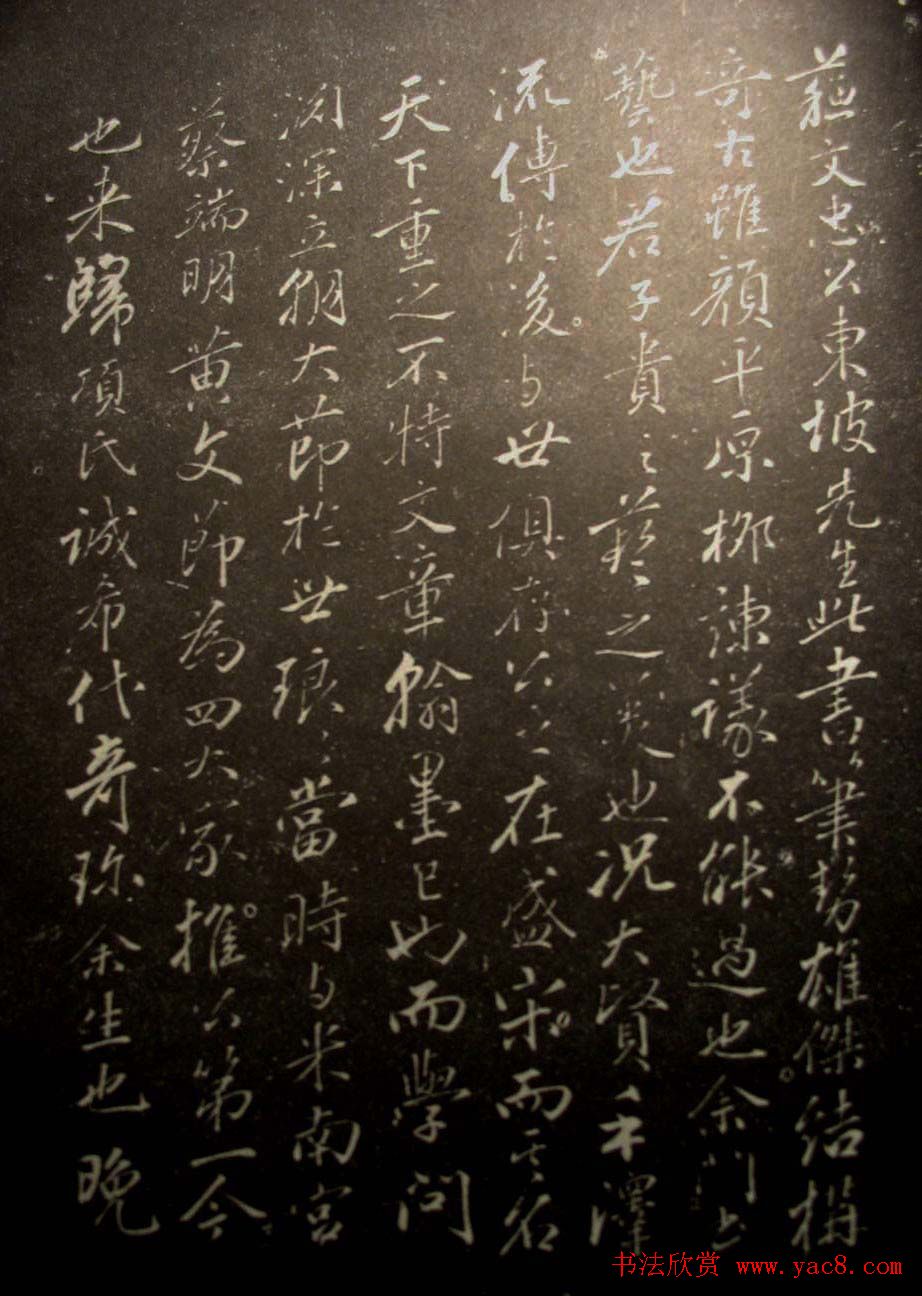 蘇文忠公東坡先生此書筆勢雄傑結構
奇古雖顏平原柳諫議不能過也余聞書
藝也君子貴之藝之美也况大賢手澤
流傳於後与世俱存公之在盛宋而其名
天下重之不特文章翰墨已也而學問
淵深立朝大節於世琅々當時与米南宮
蔡端明黄文節為四大家推公第一今
也来歸項氏誠希代奇珍余生也晚
书法欣赏 www.yac8.com